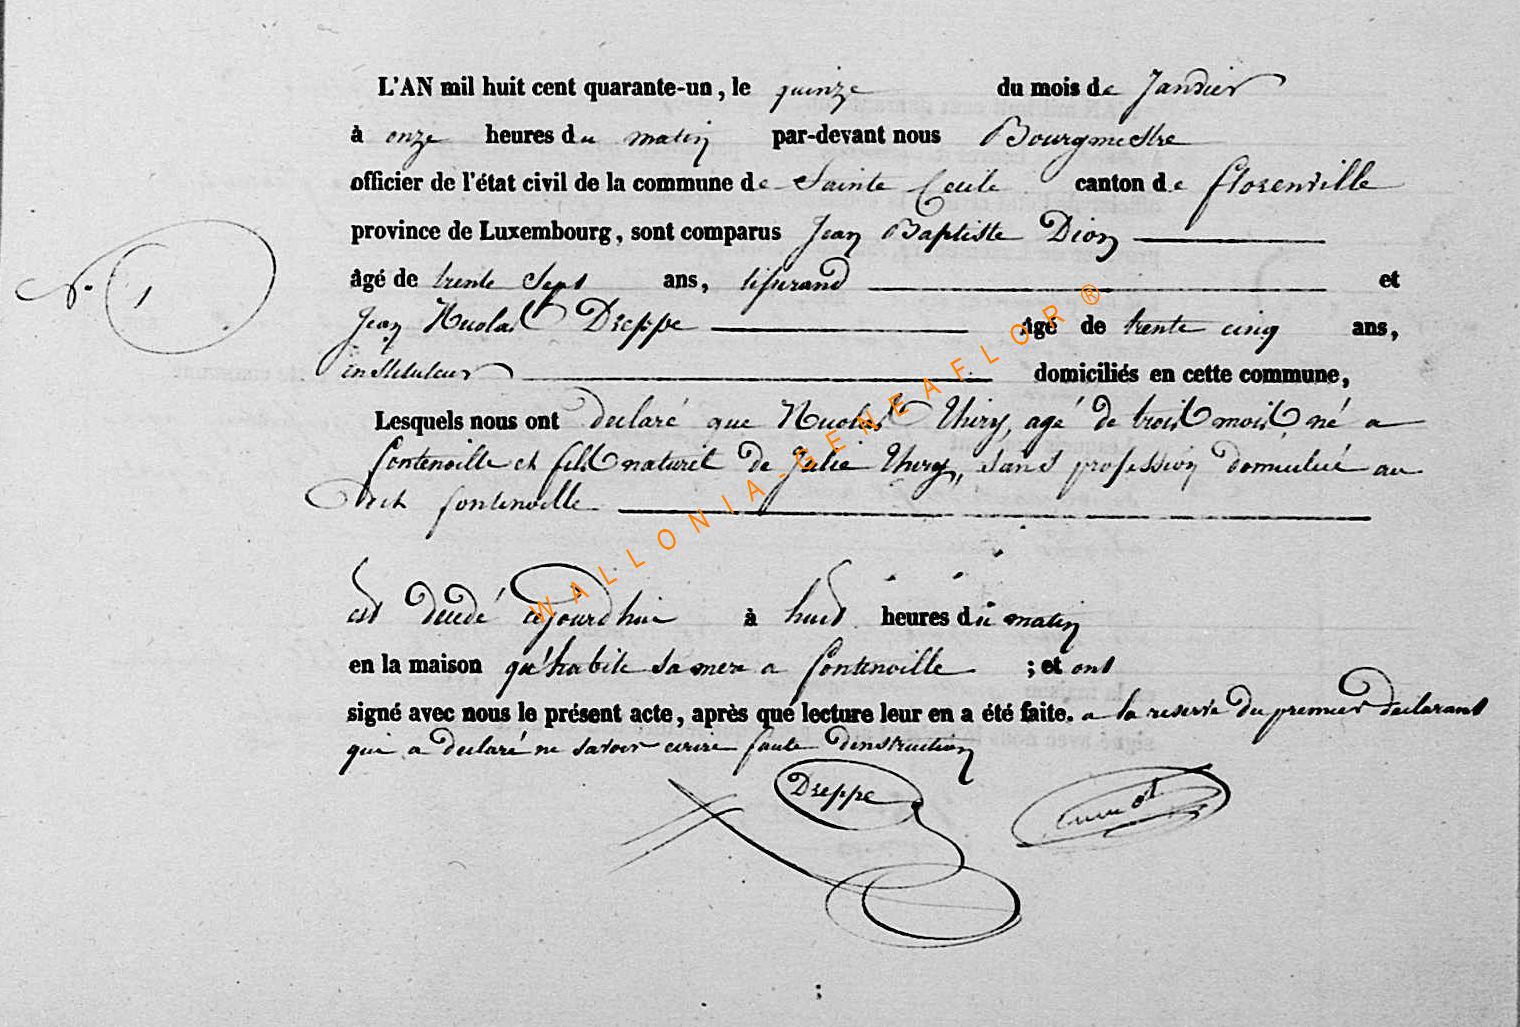 L'AN mil huit cent quarante-un, le quinze du mois de Janvier
à onze heures du matin par-devant nous Bourgmestre
officier de l'état civil de la commune de Sainte Cecile canton de florenville
province de Luxembourg, sont comparus Jean Baptiste Dion
N.° 1
âgé de trente sept ans, tisserand et
Jean Nicolas Dreppe âgé de trente cinq ans,
instituteur domiciliés en cette commune,
Lesquels nous ont declaré que Nicolas thiry, agé de trois mois né a
fontenoille et fils naturel de Julie thiry, sans profession domicilié au
dit fontenoille
est decedé cejourdhui à huit heures du matin
en la maison qu'habite sa mere a fontenoille ; et ont
signé avec nous le présent acte, après que lecture leur en a été faite. a la reserve du premier declarant
qui a declaré ne savoir ecrire faute dinstruction
Dreppe
WALLONIA-GENEAFLOR ®